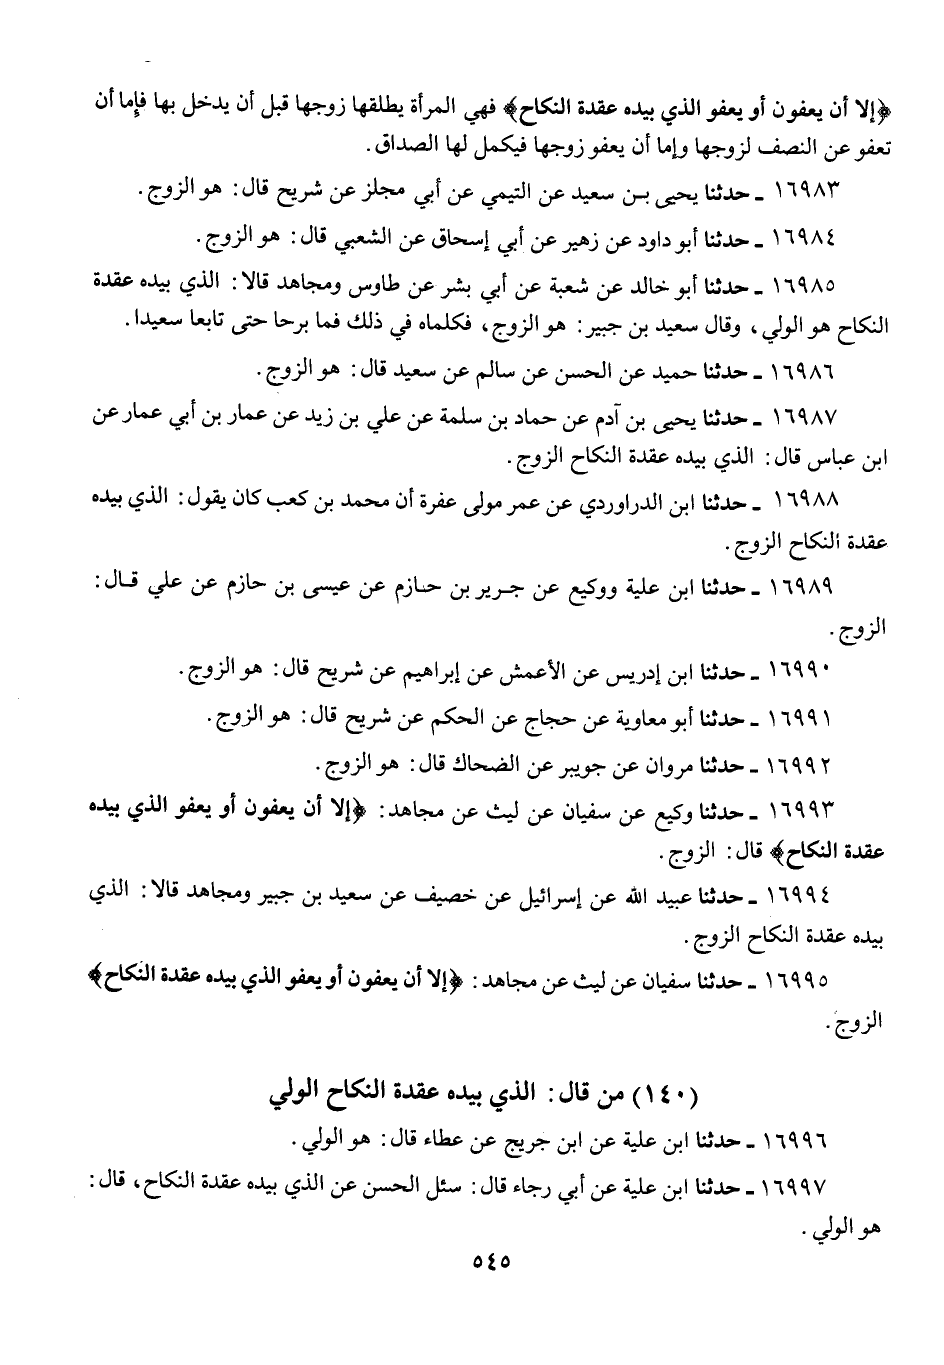 ﴿إلا أن يعفون أو يعفو الذي بيده عقدة النكاح﴾ فهي المرأة يطلقها زوجها قبل أن يدخل بها فإما أن
تعفو عن النصف لزوجها وإما أن يعفو زوجها فيكمل لها الصداق.
١٦٩٨٣ ـ حدثنا يحيى بن سعيد عن التيمي عن أبي مجلز عن شريح قال: هو الزوج.
١٦٩٨٤ ـ حدثنا أبو داود عن زهير عن أبي إسحاق عن الشعبي قال: هو الزوج.
١٦٩٨٥ ـ حدثنا أبو خالد عن شعبة عن أبي بشر عن طاوس ومجاهد قالا: الذي بيده عقدة
النكاح هو الولي، وقال سعيد بن جبير: هو الزوج، فكلماه في ذلك فما برحا حتى تابعا سعيدا.
١٦٩٨٦ ـ حدثنا حميد عن الحسن عن سالم عن سعيد قال: هو الزوج.
١٦٩٨٧ ـ حدثنا يحيى بن آدم عن حماد بن سلمة عن علي بن زيد عن عمار بن أبي عمار عن
ابن عباس قال: الذي بيده عقدة النكاح الزوج.
١٦٩٨٨ ـ حدثنا ابن الدراوردي عن عمر مولى عفرة أن محمد بن كعب كان يقول: الذي بيده
عقدة النكاح الزوج.
١٦٩٨٩ ـ حدثنا ابن علية ووكيع عن جرير بن حازم عن عيسى بن حازم عن علي قال:
الزوج.
١٦٩٩٠ ـ حدثنا ابن إدريس عن الأعمش عن إبراهيم عن شريح قال: هو الزوج.
١٦٩٩١ ـ حدثنا أبو معاوية عن حجاج عن الحكم عن شريح قال: هو الزوج.
١٦٩٩٢ ـ حدثنا مروان عن جويبر عن الضحاك قال: هو الزوج.
١٦٩٩٣ ـ حدثنا وكيع عن سفيان عن ليث عن مجاهد: ﴿إلا أن يعفون أو يعفو الذي بيده
عقدة النكاح﴾ قال: الزوج.
١٦٩٩٤ ـ حدثنا عبيد الله عن إسرائيل عن خصيف عن سعيد بن جبير ومجاهد قالا: الذي
بيده عقدة النكاح الزوج.
١٦٩٩٥ ـ حدثنا سفيان عن ليث عن مجاهد: ﴿إلا أن يعفون أو يعفو الذي بيده عقدة النكاح﴾
الزوج.
(١٤٠) من قال: الذي بيده عقدة النكاح الولي
١٦٩٩٦ ـ حدثنا ابن علية عن ابن جريج عن عطاء قال: هو الولي.
١٦٩٩٧ ـ حدثنا ابن علية عن أبي رجاء قال: سئل الحسن عن الذي بيده عقدة النكاح، قال:
هو الولي.
٥٤٥